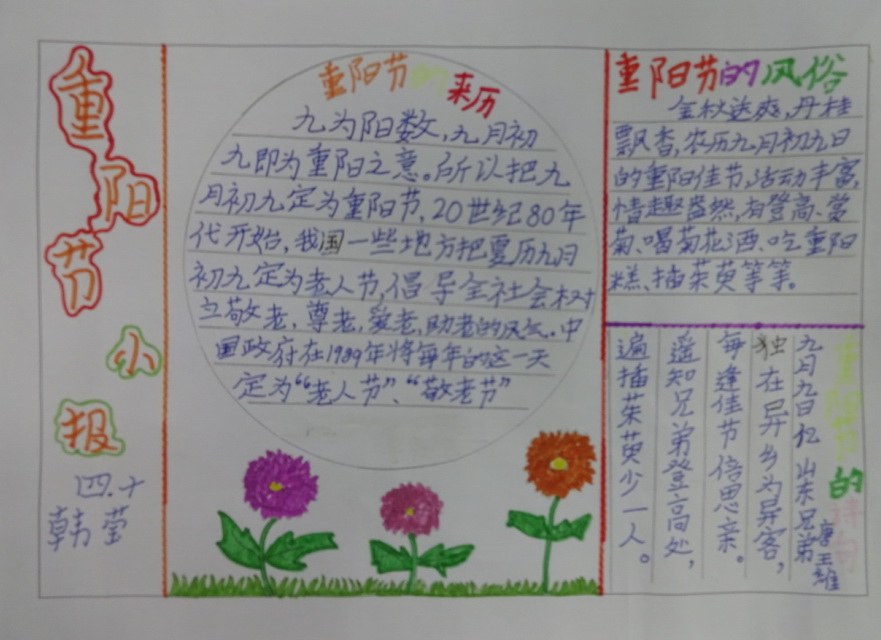 重阳节
小
报
四.十
韩莹
重阳节的来历
九为阳数,九月初
九即为重阳之意。所以把九
月初九定为重阳节,20世纪80年
代开始,我国一些地方把夏历九月
初九定为老人节,倡导全社会树
立敬老,尊老,爱老,助老的风气.中
国政府在1989年将每年的这一天
定为“老人节”、“敬老节”
重阳节的风俗
金秋送爽,丹桂
飘香,农历九月初九日
的重阳佳节,活动丰富,
情趣盎然,有登高、赏
菊、喝菊花酒、吃重阳
糕、插茱萸等等。
重阳节的诗句
九月九日忆山东兄弟
唐王维
独在异乡为异客,
每逢佳节倍思亲。
遥知兄弟登高处,
遍插茱萸少一人。